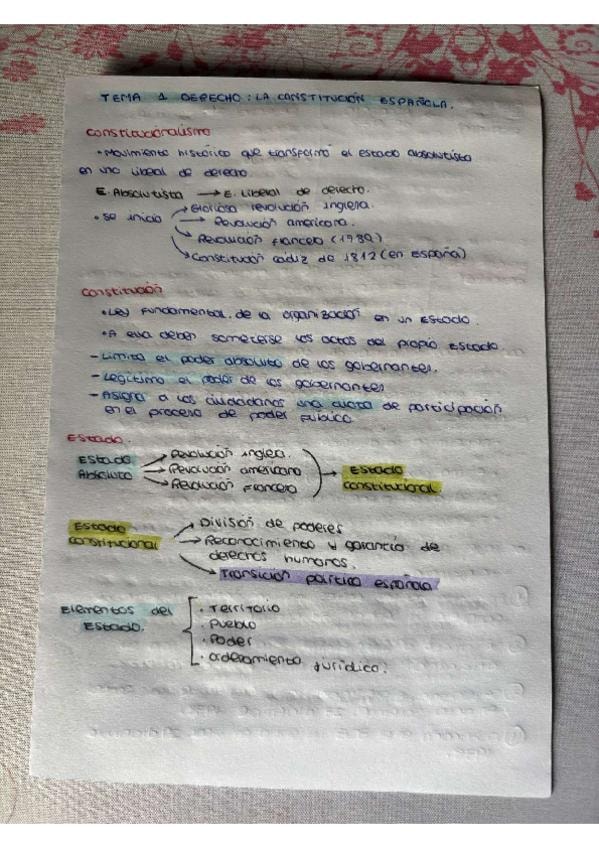 TEMA 1 DERECHO: LA CONSTITUCIÓN ESPAÑOLA.
Constitucionalismo
• Movimiento histórico que transformó el estado absolutista
en uno liberal de derecho.
E. Absolutista → E. liberal de derecho.
• Se inicia → Gloriosa revolución inglesa.
→ Revolución americana.
→ Revolución francesa (1789)
→ Constitución cádiz de 1812 (en España)
Constitución
• Ley fundamental de la organización en un Estado.
• A ella deben someterse los actos del propio Estado
- Limita el poder absoluto de los gobernantes.
- Legitima el poder de los gobernantes
- Asigna a los ciudadanos una cuota de participación
en el proceso de poder público.
Estado.
Estado Absoluto → Revolución inglesa.
→ Revolución americana
→ Revolución francesa
→ Estado constitucional.
Estado constitucional → División de poderes
→ Reconocimiento y garantía de
derechos humanos.
→ Transición política española
Elementos del Estado.
• Territorio
• Pueblo
• Poder
• ordenamiento jurídico.